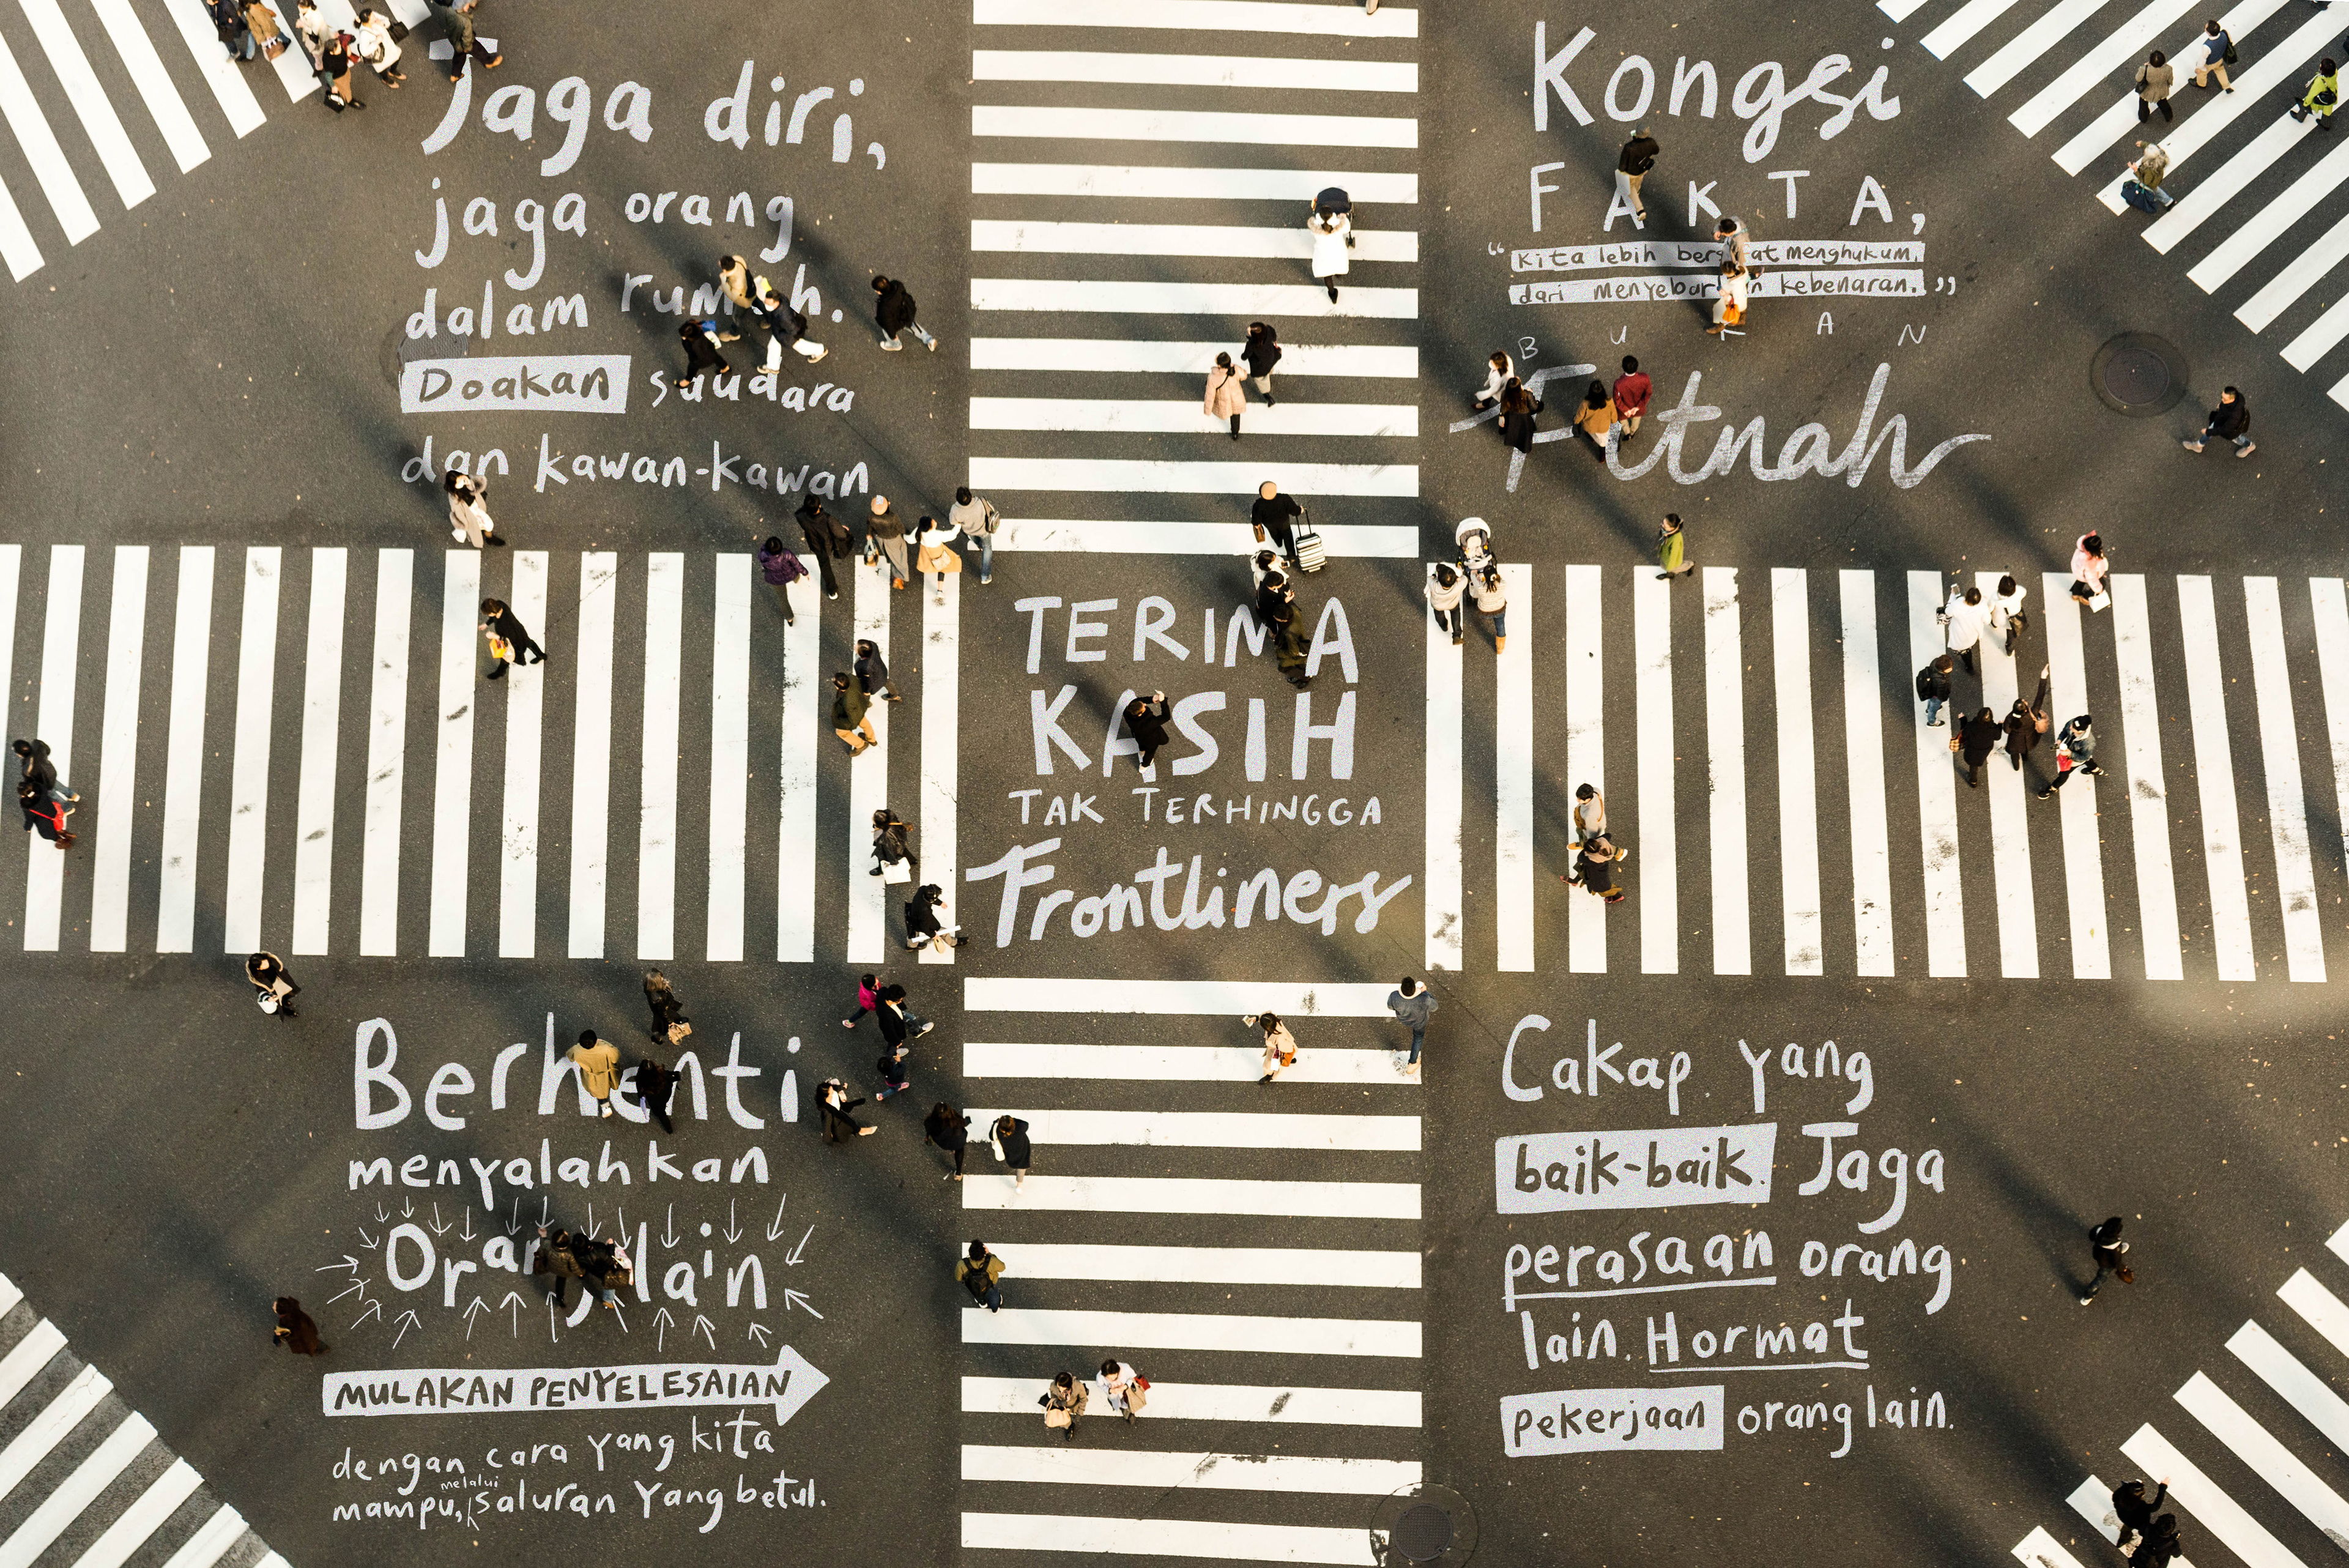 Jaga diri,
jaga orang
dalam rumah.
Doakan saudara
dan kawan-kawan
Kongsi
FAKTA,
"Kita lebih bersifat menghukum,
dari menyebarkan kebenaran."
BUKAN
Fitnah
TERIMA
KASIH
TAK TERHINGGA
Frontliners
Berhenti
menyalahkan
Orang lain
MULAKAN PENYELESAIAN
dengan cara yang kita
mampu, melalui saluran yang betul.
Cakap yang
baik-baik. Jaga
perasaan orang
lain. Hormat
pekerjaan orang lain.